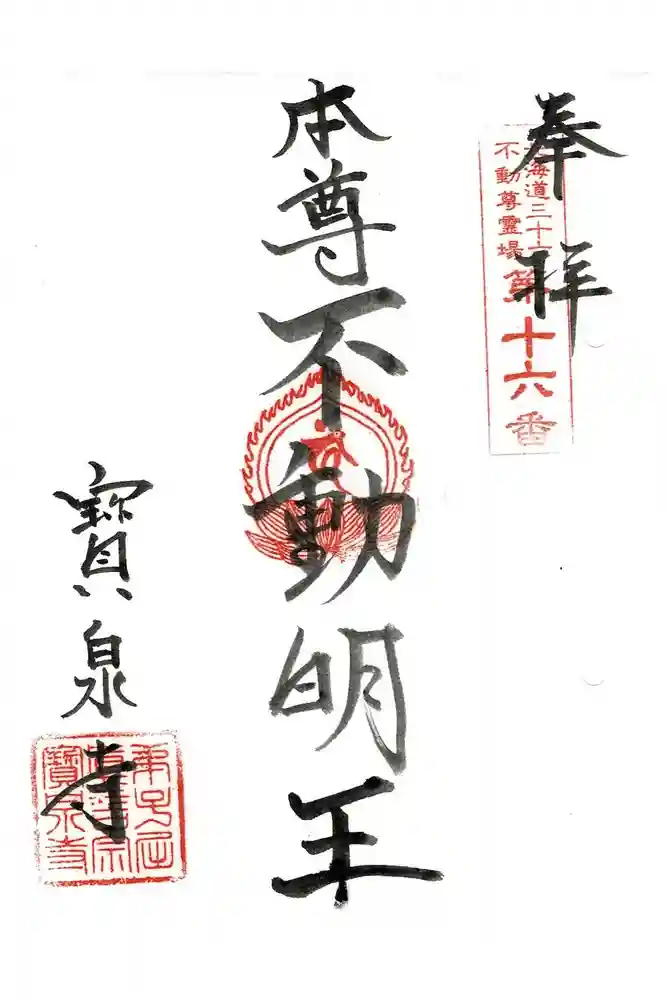 奉拝
北海道三十六
不動尊霊場
第十六番
本尊不動明王
寶泉寺
寶泉寺